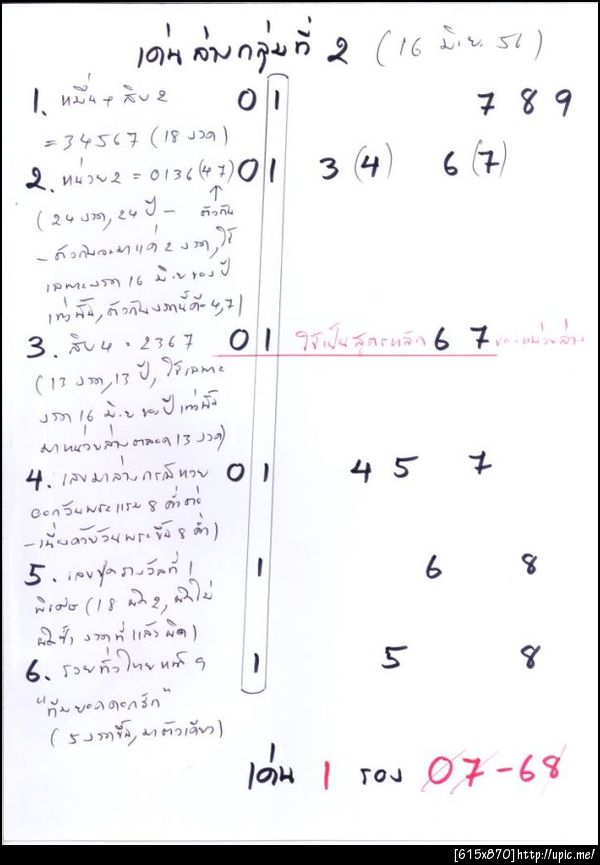 เด่นล่างกลุ่มที่ 2 (16 มิ.ย. 56)
1. หมื่น+สิบ2 0 1 7 8 9
= 34567 (18 งวด)
2. หน่วย2 = 0136(47) 0 1 3 (4) 6 (7)
(24 งวด, 24 ปี - ตัวกัน
- ตัวกันจะมาแค่ 2 งวด, ใช้
เฉพาะงวด 16 มิ.ย ของปี
เท่านั้น, ตัวกันงวดนี้คือ 4,7)
3. สิบ4 = 2367 0 1 ใช้เป็นสูตรหลัก 6 7 ของหน่วยล่าง
(13 งวด, 13 ปี, ใช้เฉพาะ
งวด 16 มิ.ย ของปีเท่านั้น
มาหน่วยล่างตลอด 13 งวด)
4. เลขมาล่างกรณีหวย 0 1 4 5 7
ออกวันพระแรม 8 ค่ำต่อ
-เนื่องด้วยวันพระขึ้น 8 ค่ำ)
5. เลขชุดรางวัลที่ 1 1 6 8
พิเศษ (18 ผิด 2, ผิดไม่
ผิดซ้ำ งวดที่แล้วผิด)
6. รวยทั่วไทยหน้า 9 1 5 8
"ทีมยอดดอกรัก"
(5 งวดขึ้น, มาตัวเดียว)
เด่น 1 รอง 07-68
[615x870]http://upic.me/